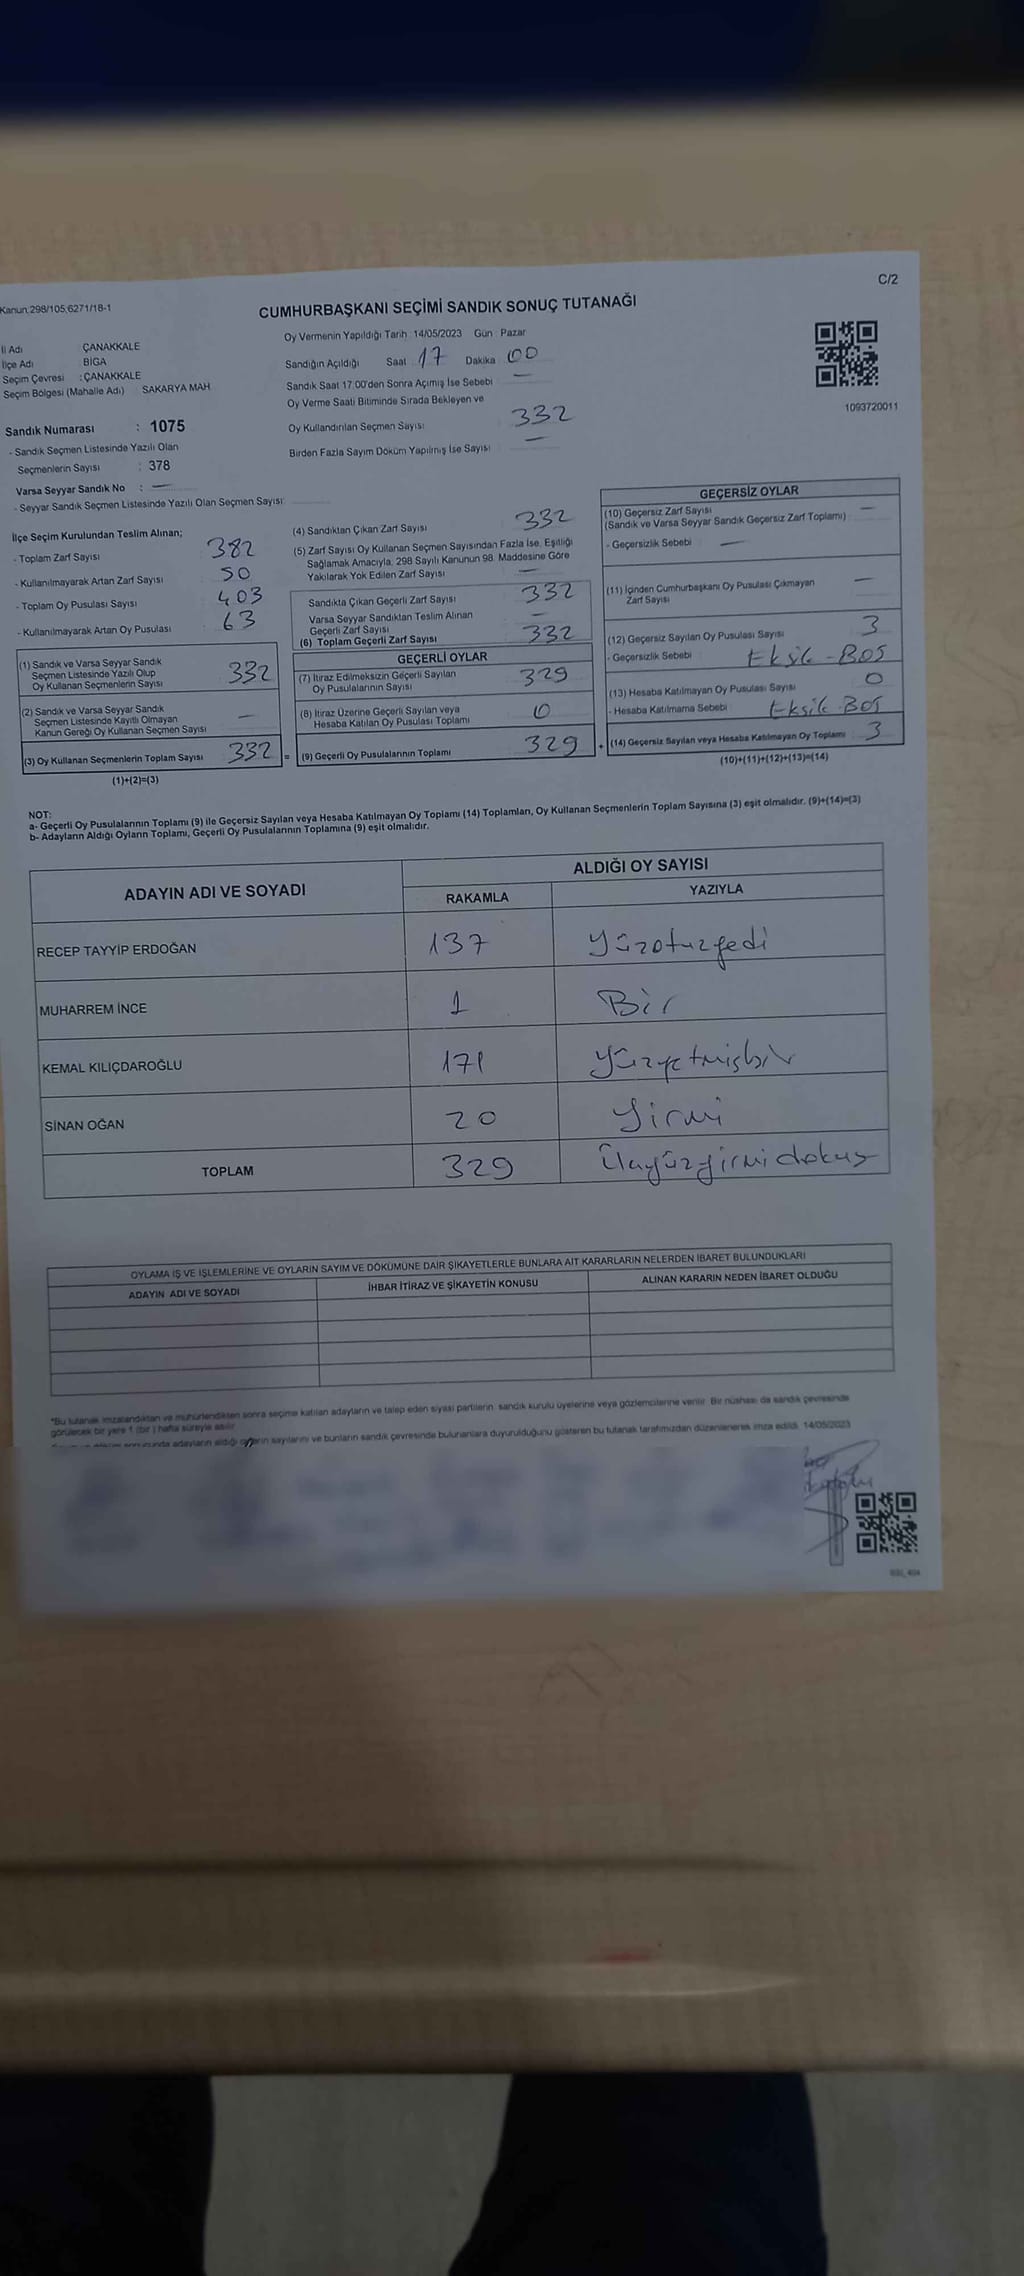 C/2
Kanun;298/105;6271/18-1
CUMHURBAŞKANI SEÇİMİ SANDIK SONUÇ TUTANAĞI
İl Adı ÇANAKKALE
İlçe Adı BİGA
Seçim Çevresi : ÇANAKKALE
Seçim Bölgesi (Mahalle Adı) SAKARYA MAH
Oy Vermenin Yapıldığı Tarih 14/05/2023 Gün : Pazar
Sandığın Açıldığı Saat 17 Dakika 00
Sandık Saat 17.00'den Sonra Açımış İse Sebebi —
Oy Verme Saati Bitiminde Sırada Bekleyen ve
Oy Kullandırılan Seçmen Sayısı 332
Birden Fazla Sayım Döküm Yapılmış İse Sayısı —
1093720011
Sandık Numarası : 1075
- Sandık Seçmen Listesinde Yazılı Olan
Seçmenlerin Sayısı : 378
Varsa Seyyar Sandık No : —
- Seyyar Sandık Seçmen Listesinde Yazılı Olan Seçmen Sayısı:
İlçe Seçim Kurulundan Teslim Alınan;
- Toplam Zarf Sayısı 382
- Kullanılmayarak Artan Zarf Sayısı 50
- Toplam Oy Pusulası Sayısı 403
- Kullanılmayarak Artan Oy Pusulası 63
(1) Sandık ve Varsa Seyyar Sandık
Seçmen Listesinde Yazılı Olup
Oy Kullanan Seçmenlerin Sayısı 332
(2) Sandık ve Varsa Seyyar Sandık
Seçmen Listesinde Kayıtlı Olmayan
Kanun Gereği Oy Kullanan Seçmen Sayısı —
(3) Oy Kullanan Seçmenlerin Toplam Sayısı 332 =
(1)+(2)=(3)
(4) Sandıktan Çıkan Zarf Sayısı 332
(5) Zarf Sayısı Oy Kullanan Seçmen Sayısından Fazla İse, Eşitliği
Sağlamak Amacıyla, 298 Sayılı Kanunun 98. Maddesine Göre
Yakılarak Yok Edilen Zarf Sayısı —
Sandıkta Çıkan Geçerli Zarf Sayısı 332
Varsa Seyyar Sandıktan Teslim Alınan
Geçerli Zarf Sayısı —
(6) Toplam Geçerli Zarf Sayısı 332
GEÇERLİ OYLAR
(7) İtiraz Edilmeksizin Geçerli Sayılan
Oy Pusulalarının Sayısı 329
(8) İtiraz Üzerine Geçerli Sayılan veya
Hesaba Katılan Oy Pusulası Toplamı 0
(9) Geçerli Oy Pusulalarının Toplamı 329 +
GEÇERSİZ OYLAR
(10) Geçersiz Zarf Sayısı —
(Sandık ve Varsa Seyyar Sandık Geçersiz Zarf Toplamı)
- Geçersizlik Sebebi —
(11) İçinden Cumhurbaşkanı Oy Pusulası Çıkmayan
Zarf Sayısı —
(12) Geçersiz Sayılan Oy Pusulası Sayısı 3
- Geçersizlik Sebebi Eksik - BOŞ
(13) Hesaba Katılmayan Oy Pusulası Sayısı 0
- Hesaba Katılmama Sebebi Eksik BOŞ
(14) Geçersiz Sayılan veya Hesaba Katılmayan Oy Toplamı 3
(10)+(11)+(12)+(13)=(14)
NOT:
a- Geçerli Oy Pusulalarının Toplamı (9) ile Geçersiz Sayılan veya Hesaba Katılmayan Oy Toplamı (14) Toplamları, Oy Kullanan Seçmenlerin Toplam Sayısına (3) eşit olmalıdır. (9)+(14)=(3)
b- Adayların Aldığı Oyların Toplamı, Geçerli Oy Pusulalarının Toplamına (9) eşit olmalıdır.
ADAYIN ADI VE SOYADI ALDIĞI OY SAYISI
RAKAMLA YAZIYLA
RECEP TAYYİP ERDOĞAN 137 Yüzotuzyedi
MUHARREM İNCE 1 Bir
KEMAL KILIÇDAROĞLU 171 Yüzyetmişbir
SİNAN OĞAN 20 Yirmi
TOPLAM 329 Üçyüzyirmidokuz
OYLAMA İŞ VE İŞLEMLERİNE VE OYLARIN SAYIM VE DÖKÜMÜNE DAİR ŞİKAYETLERLE BUNLARA AİT KARARLARIN NELERDEN İBARET BULUNDUKLARI
ADAYIN ADI VE SOYADI İHBAR İTİRAZ VE ŞİKAYETİN KONUSU ALINAN KARARIN NEDEN İBARET OLDUĞU
*Bu tutanak imzalandıktan ve mühürlendikten sonra seçime katılan adayların ve talep eden siyasi partilerin sandık kurulu üyelerine veya gözlemcilerine verilir. Bir nüshası da sandık çevresinde
görülecek bir yere 1 (bir ) hafta süreyle asılır.
adayların aldığı oyların sayılarını ve bunların sandık çevresinde bulunanlara duyurulduğunu gösteren bu tutanak tarafımızdan düzenlenerek imza edildi. 14/05/2023